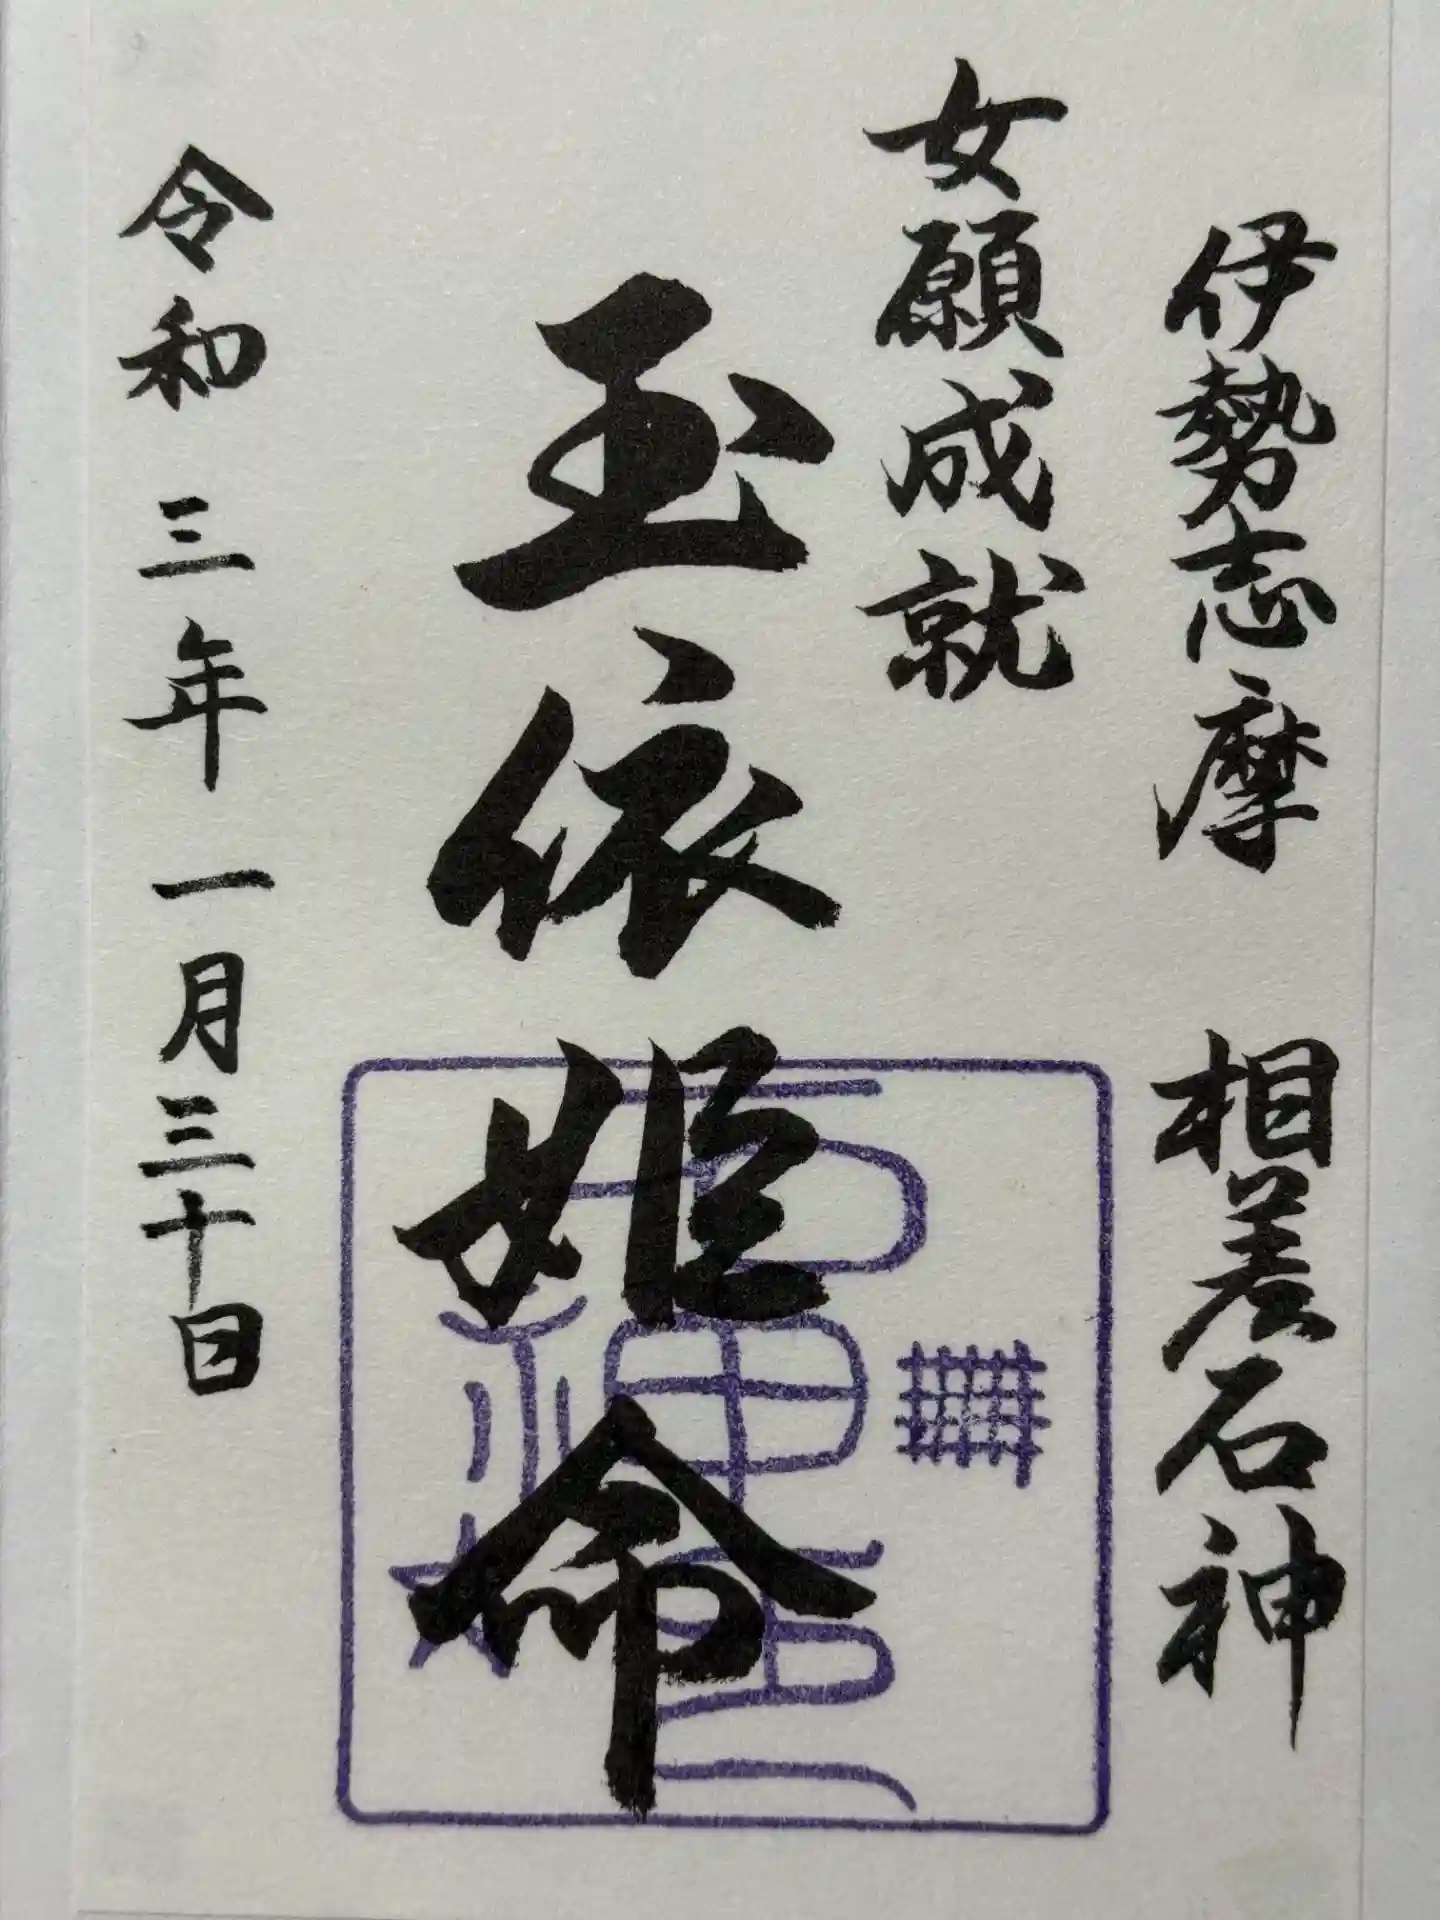 伊勢志摩　相差石神
女願成就
玉依姫命
令和三年一月三十日
石神